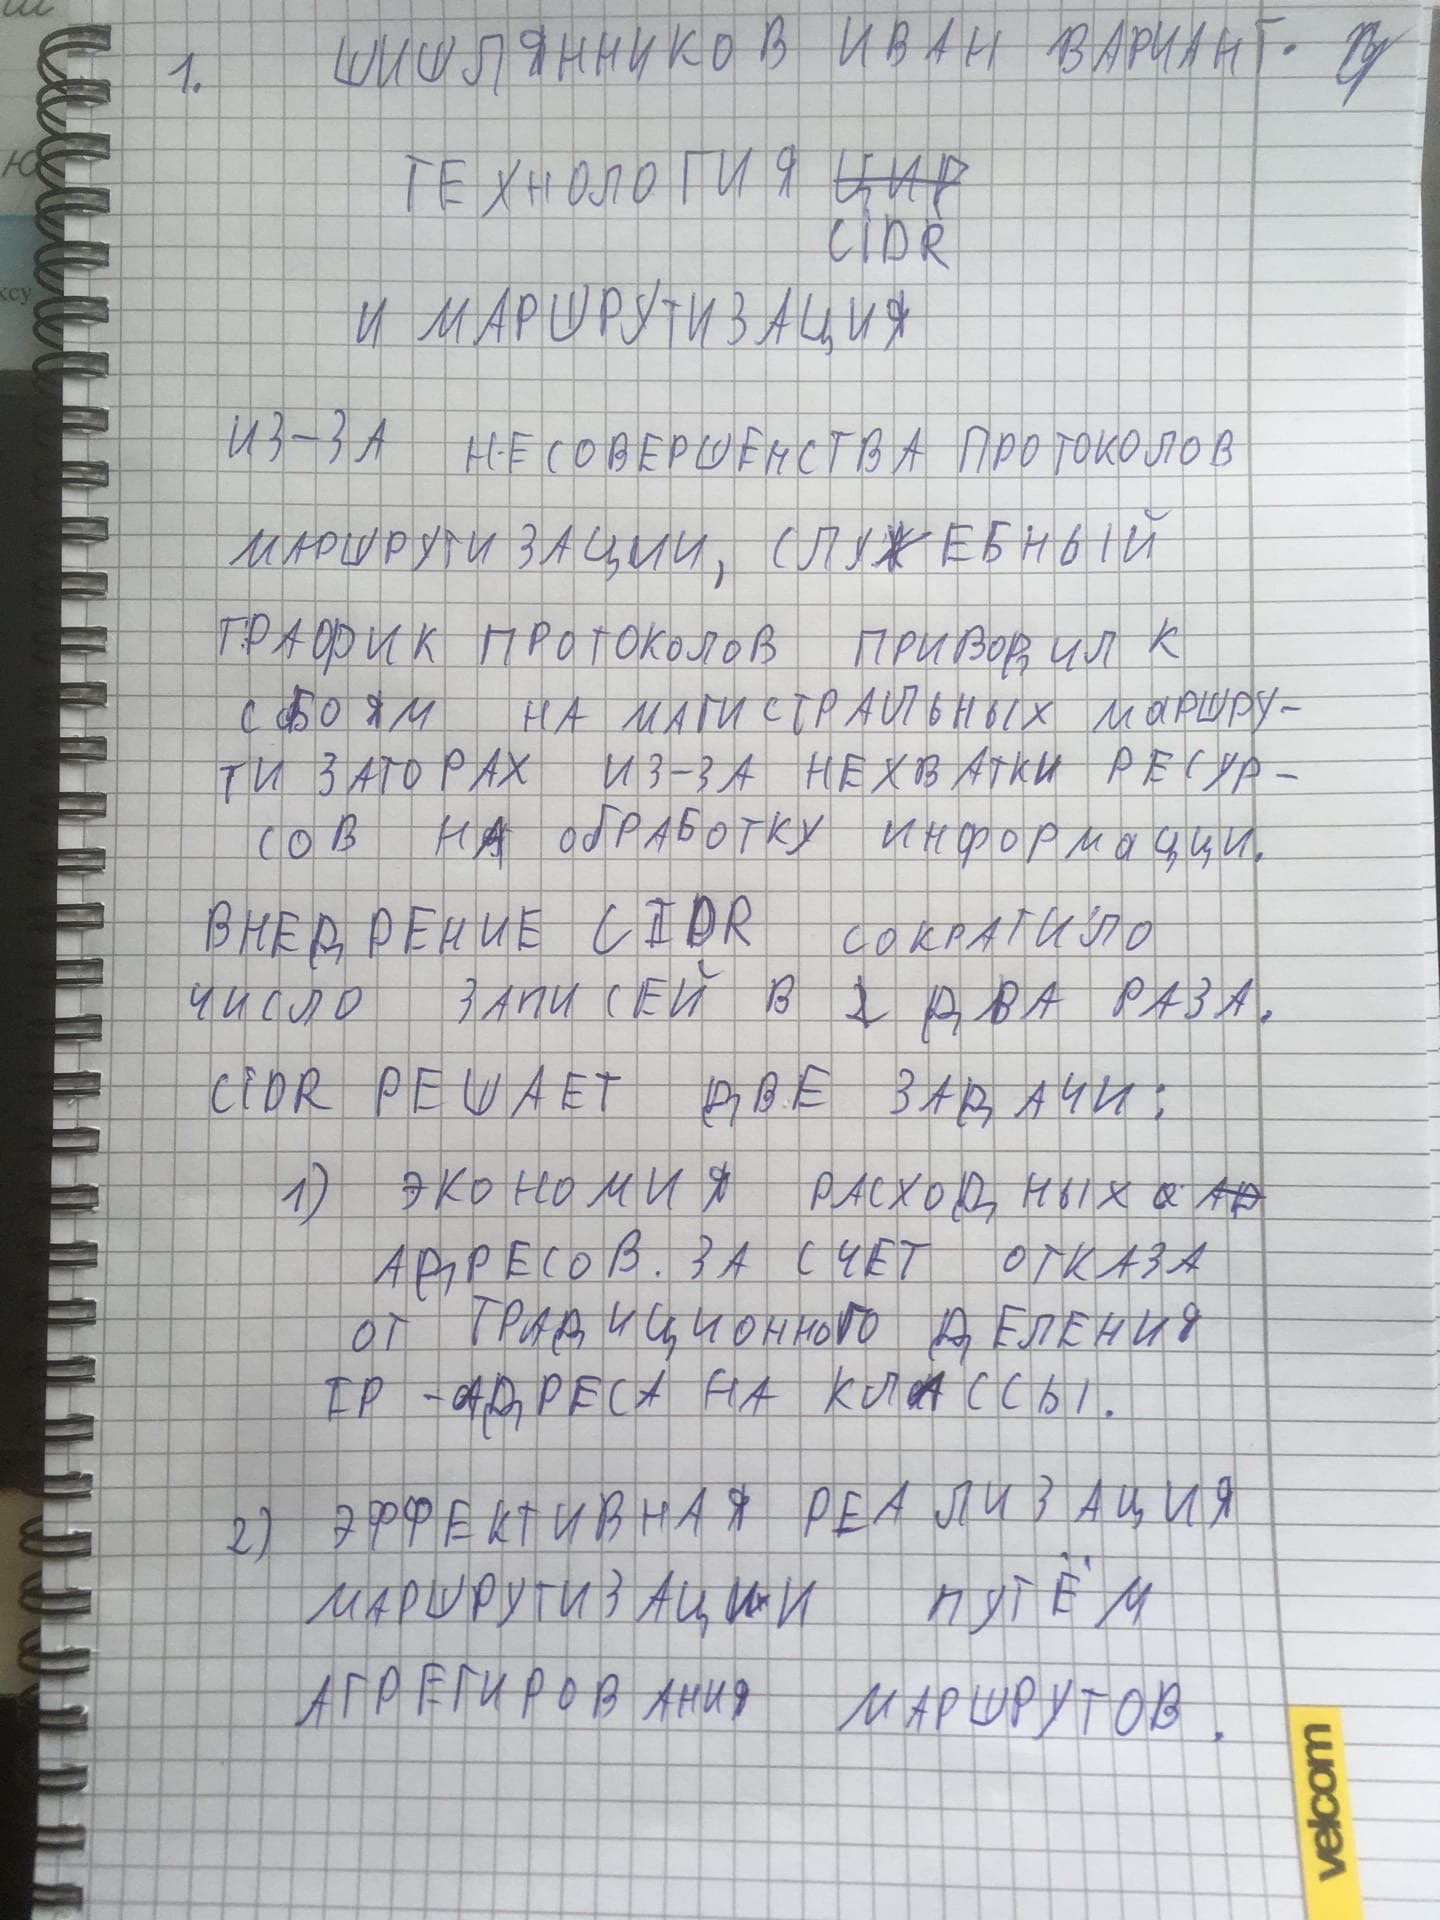 1. ШИШЛЯННИКОВ ИВАН ВАРИАНТ.
ТЕХНОЛОГИЯ ЦИР
CIDR
И МАРШРУТИЗАЦИЯ
ИЗ-ЗА НЕСОВЕРШЕНСТВА ПРОТОКОЛОВ
МАРШРУТИЗАЦИИ, СЛУЖЕБНЫЙ
ТРАФИК ПРОТОКОЛОВ ПРИВОДИЛ К
СБОЯМ НА МАГИСТРАЛЬНЫХ МАРШРУ-
ТИЗАТОРАХ ИЗ-ЗА НЕХВАТКИ РЕСУР-
СОВ НА ОБРАБОТКУ ИНФОРМАЦИИ.
ВНЕДРЕНИЕ CIDR СОКРАТИЛО
ЧИСЛО ЗАПИСЕЙ В 2 ДВА РАЗА.
CIDR РЕШАЕТ ДВЕ ЗАДАЧИ:
1) ЭКОНОМИЯ РАСХОДНЫХ АД
АДРЕСОВ. ЗА СЧЕТ ОТКАЗА
ОТ ТРАДИЦИОННОГО ДЕЛЕНИЯ
IP-АДРЕСА НА КЛАССЫ.
2) ЭФФЕКТИВНАЯ РЕАЛИЗАЦИЯ
МАРШРУТИЗАЦИИ ПУТЁМ
АГРЕГИРОВАНИЯ МАРШРУТОВ.
velcom
ксу
Ю